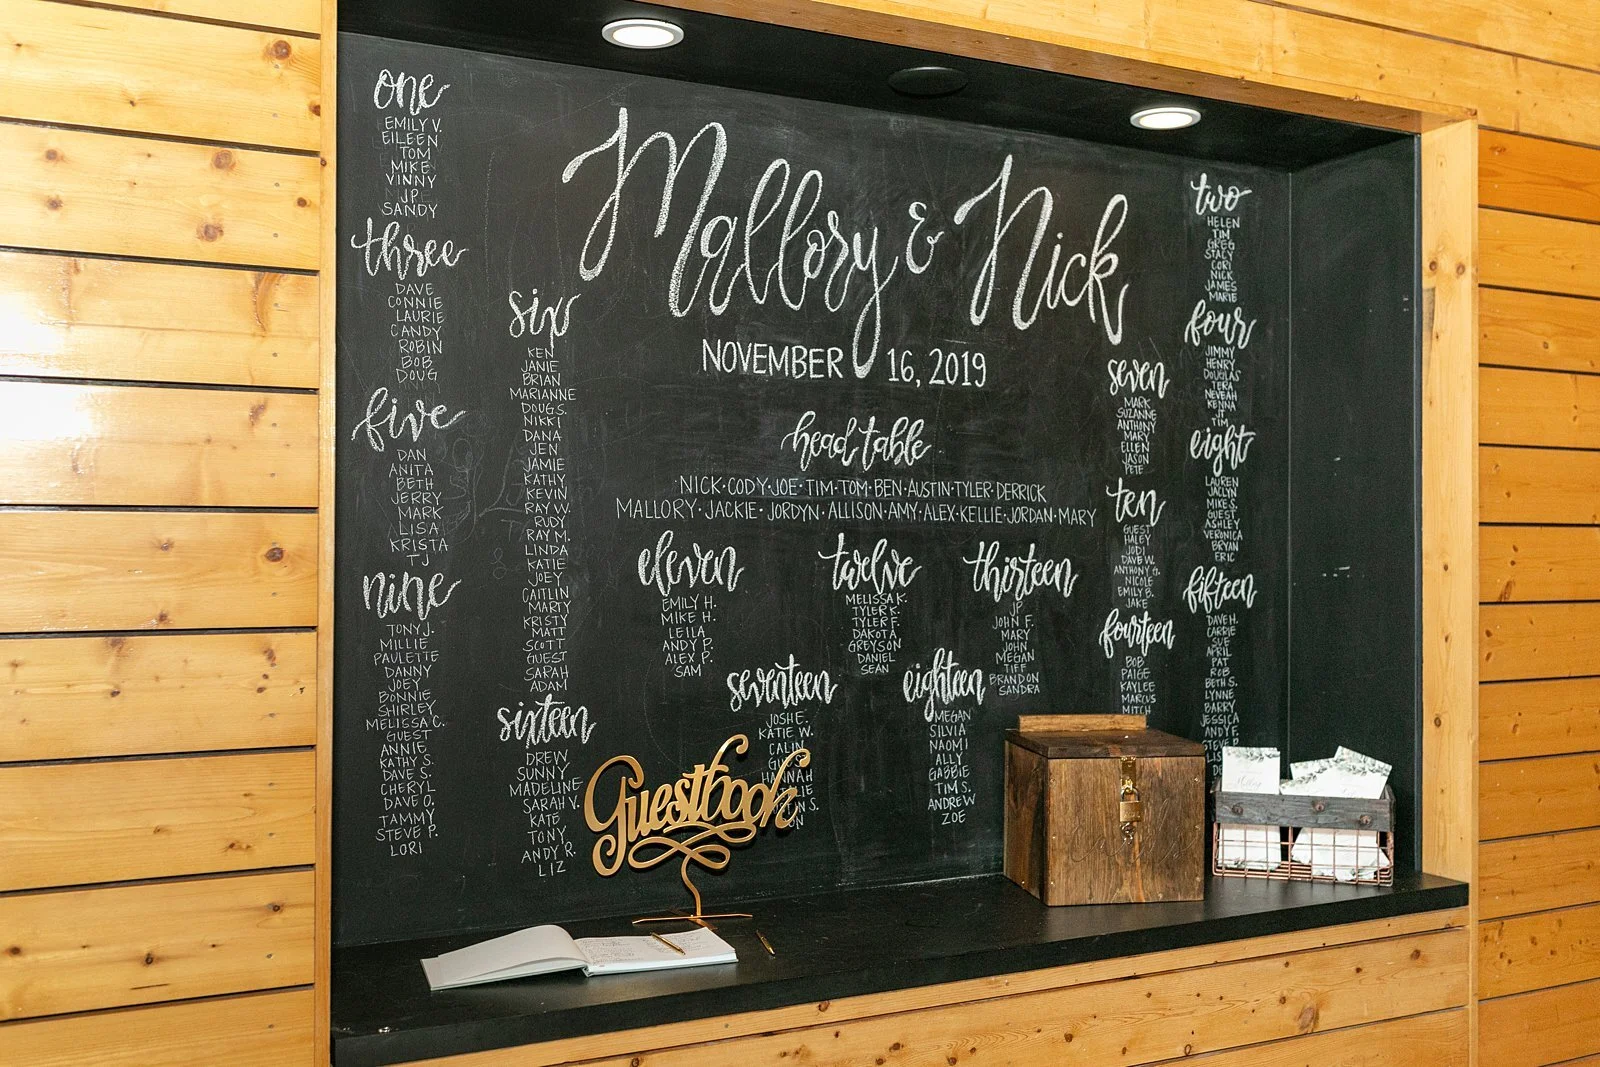 Mallory & Nick
NOVEMBER 16, 2019
head table
NICK·CODY·JOE·TIM·TOM·BEN·AUSTIN·TYLER·DERRICK
MALLORY·JACKIE·JORDYN·ALLISON·AMY·ALEX·KELLIE·JORDAN·MARY
one
EMILY V.
EILEEN
TOM
MIKE
VINNY
JP
SANDY
three
DAVE
CONNIE
LAURIE
CANDY
ROBIN
BOB
DOUG
five
DAN
ANITA
BETH
JERRY
MARK
LISA
KRISTA
TJ
nine
TONY J.
MILLIE
PAULETTE
DANNY
JOEY
BONNIE
SHIRLEY
MELISSA C.
GUEST
ANNIE
KATHY S.
DAVE S.
CHERYL
DAVE O.
TAMMY
STEVE P.
LORI
six
KEN
JANIE
BRIAN
MARIANNE
DOUG S.
NIKKI
DANA
JEN
JAMIE
KATHY
KEVIN
RAY W.
RUDY
RAY M.
LINDA
KATIE
JOEY
CAITLIN
MARTY
KRISTY
MATT
SCOTT
GUEST
SARAH
ADAM
sixteen
DREW
SUNNY
MADELINE
SARAH V.
KATE
TONY
ANDY R.
LIZ
eleven
EMILY H.
MIKE H.
LEILA
ANDY P.
ALEX P.
SAM
seventeen
JOSH E.
KATIE W.
CALIN
HANNAH
twelve
MELISSA K.
TYLER K.
TYLER F.
DAKOTA
GREYSON
DANIEL
SEAN
eighteen
MEGAN
SILVIA
NAOMI
ALLY
GABBIE
TIM S.
ANDREW
ZOE
thirteen
JP
JOHN F.
MARY
JOHN
MEGAN
TIFF
BRANDON
SANDRA
seven
MARK
SUZANNE
ANTHONY
MARY
ELLEN
JASON
PETE
ten
GUEST
HALEY
JODI
DAVE W.
ANTHONY G.
NICOLE
EMILY B.
JAKE
fourteen
BOB
PAIGE
KAYLEE
MARCUS
MITCH
two
HELEN
TIM
GREG
STACY
CORI
NICK
JAMES
MARIE
four
JIMMY
HENRY
DOUGLAS
TERA
NEVEAH
KENNA
JT
TIM
eight
LAUREN
JACLYN
MIKE S.
GUEST
ASHLEY
VERONICA
BRYAN
ERIC
fifteen
DAVE H.
CARRIE
SUE
APRIL
PAT
ROB
BETH S.
LYNNE
BARRY
JESSICA
ANDY F.
Guestbook